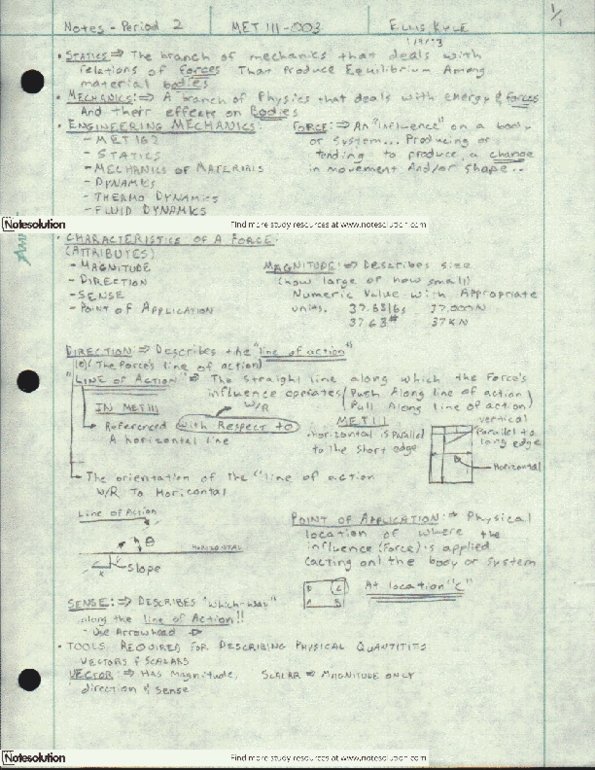 Notes - Period 2 MET 111-003 Ellis Kyle 1/1
• STATICS ⇒ The branch of mechanics that deals with
relations of forces That produce Equilibrium Among
material bodies
• MECHANICS: ⇒ A branch of Physics that deals with energy & forces
And their effects on Bodies
• ENGINEERING MECHANICS:
- MET 162
- STATICS
- MECHANICS OF MATERIALS
- DYNAMICS
- THERMO DYNAMICS
- FLUID DYNAMICS
FORCE: ⇒ An "influence" on a body
or System... Producing or
tending to produce, a change
in movement And/or shape...
Notesolution Find more study resources at www.notesolution.com
• CHARACTERISTICS OF A FORCE:
(ATTRIBUTES)
- MAGNITUDE
- DIRECTION
- SENSE
- POINT OF APPLICATION
MAGNITUDE: ⇒ Describes size
(how large or how small)
Numeric Value with Appropriate
units. 37.63 lbs 37,000N
37.63# 37KN
DIRECTION: ⇒ Describes the "line of action"
(The Force's line of action)
"LINE OF ACTION" ⇒ The straight line along which the Force's
influence operates (Push Along line of action)
(Pull Along line of action)
IN MET 111
W/R
Referenced With Respect to
A horizontal line
MET 111
horizontal is Parallel
to the short edge
vertical
Parallel to
long edge
Horizontal
The orientation of the "line of action
W/R To Horizontal
Line of Action
θ
HORIZONTAL
Slope
POINT OF APPLICATION: ⇒ Physical
location of where the
influence (Force) is applied
(acting on) the body or system
D C
A B
At location "C"
SENSE: ⇒ DESCRIBES "which-way"
along the line of Action!!
- Use Arrowhead
• TOOLS REQUIRED FOR DESCRIBING PHYSICAL QUANTITITS
VECTORS & SCALARS
VECTOR: ⇒ Has Magnitude, SCALAR ⇒ MAGNITUDE ONLY
direction & sense
Notesolution Find more study resources at www.notesolution.com